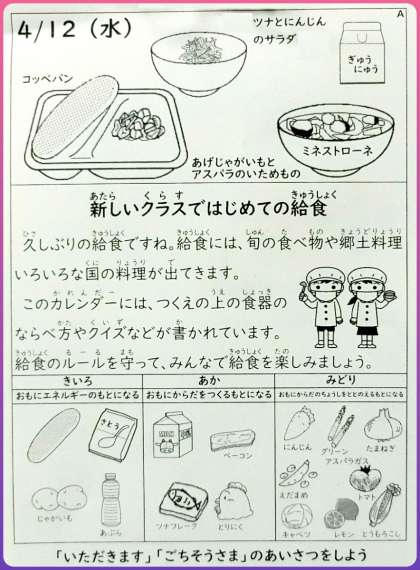 4/12（水）
A
ツナとにんじん
のサラダ
ぎゅう
にゅう
コッペパン
あげじゃがいもと
アスパラのいためもの
ミネストローネ
新しいクラスではじめての給食
久しぶりの給食ですね。給食には、旬の食べ物や郷土料理
いろいろな国の料理が出てきます。
このカレンダーには、つくえの上の食器の
ならべ方やクイズなどが書かれています。
給食のルールを守って、みんなで給食を楽しみましょう。
きいろ
おもにエネルギーのもとになる
さとう
じゃがいも
あぶら
あか
おもにからだをつくるもとになる
MILK
ベーコン
ツナフレーク
とりにく
みどり
おもにからだのちょうしをととのえるもとになる
にんじん
グリーン
アスパラガス
たまねぎ
えだまめ
トマト
キャベツ
レモン
とうもろこし
「いただきます」「ごちそうさま」のあいさつをしよう